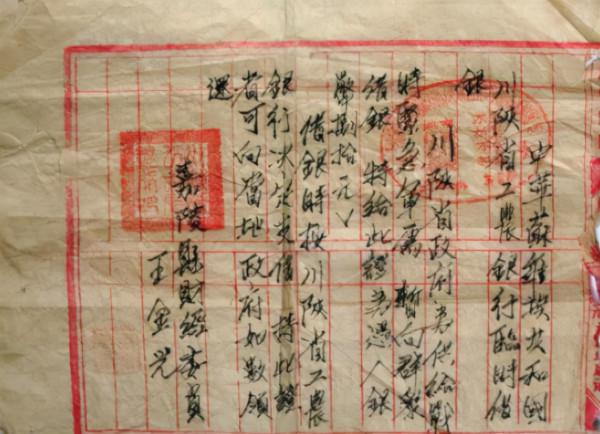 中華蘇維埃共和國
川陝省工農銀行臨時借
銀
川陝省政府为供給戰
時緊急軍需暫向群衆
借銀特給此證为憑人銀
幣捌拾元
借銀時按川陝省工農
銀行决定炎借持此證
者可向當地政府如数領
還
嘉陵縣財經委員
王金光